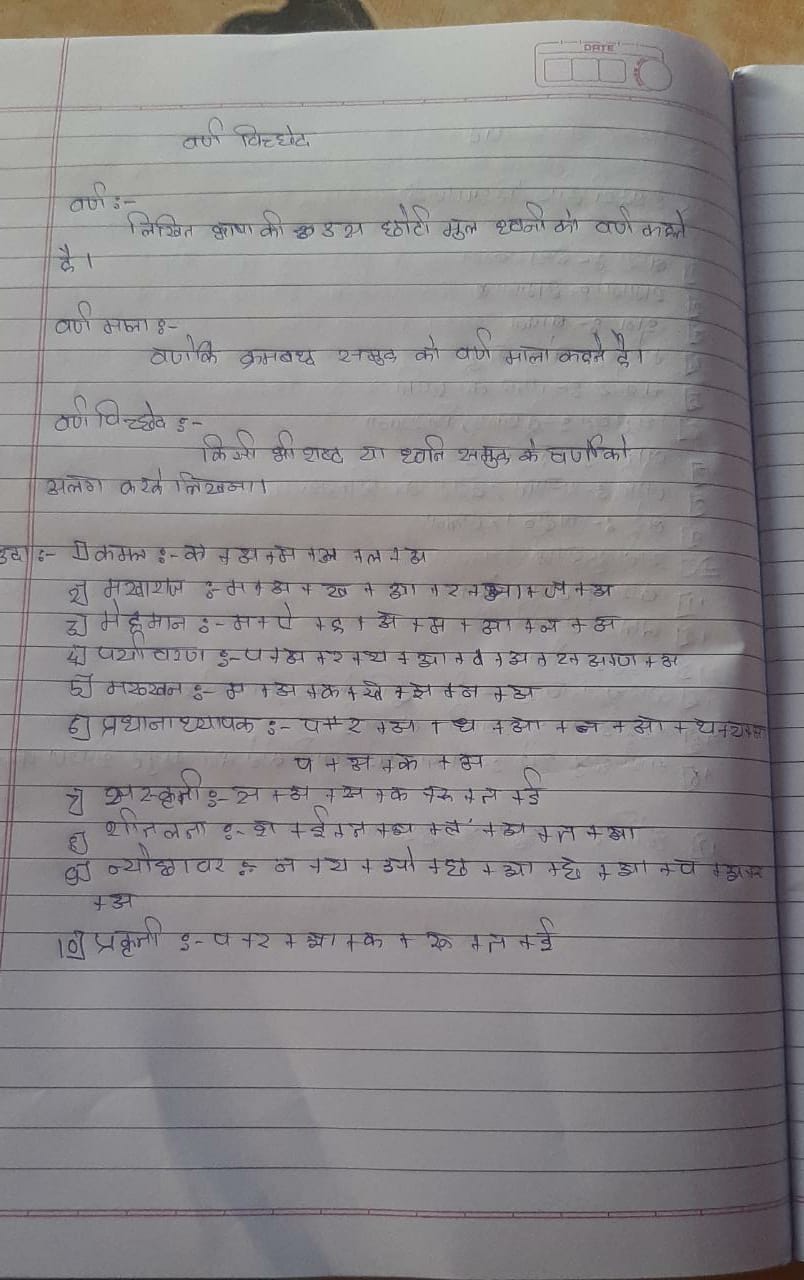 DATE
वर्ण विच्छेद
वर्ण :-
लिखित भाषा की उस छोटी मुल ध्वनी को वर्ण कहते
है।
वर्ण माला :-
वर्णोके क्रमबध्द समुह को वर्ण माला कहते है।
वर्ण विच्छेद :-
किसी भी शब्द या ध्वनि समुह के वर्णोको
अलग करके लिखना।
उदा :- 1) कमल :- क + अ + म + अ + ल + अ
2) :- म + अ + ख + आ + र + आ + ज + अ
3) मेहमान :- म + ऐ + ह + अ + म + आ + न + अ
4) पर्यावरण :- प + अ + र + य + आ + व + अ + र + अ + ण + अ
5) मख्खन :- म + अ + क + ख + अ + न + अ
6) प्रधानाध्यापक :- प + र + अ + ध + आ + न + आ + ध + य + आ
प + अ + क + अ
7) संस्कृती :- स + अ + स + क + रू + त + ई
8) शीतलता :- श + ई + त + अ + ल + अ + त + आ
9) न्योछावर :- न + य + ओ + छ + आ + व + अ + र
+ अ
10) प्रकृती :- प + र + आ + क + रू + त + ई